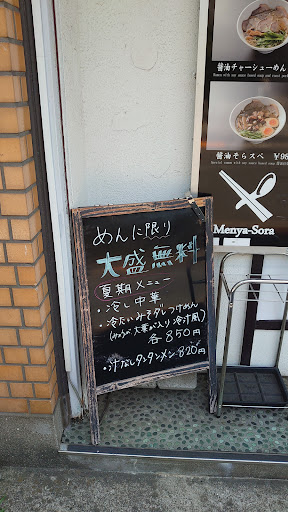 醤油チャーシューめん
醤油そらスペ ¥98
Menya-Sora
めんに限り
大盛無料
夏期メニュー
・冷し中華
・冷たいみそダレつけめん
(みょうが 大葉が入り 冷汁風)
各850円
・汁なしタンタンメン 820円